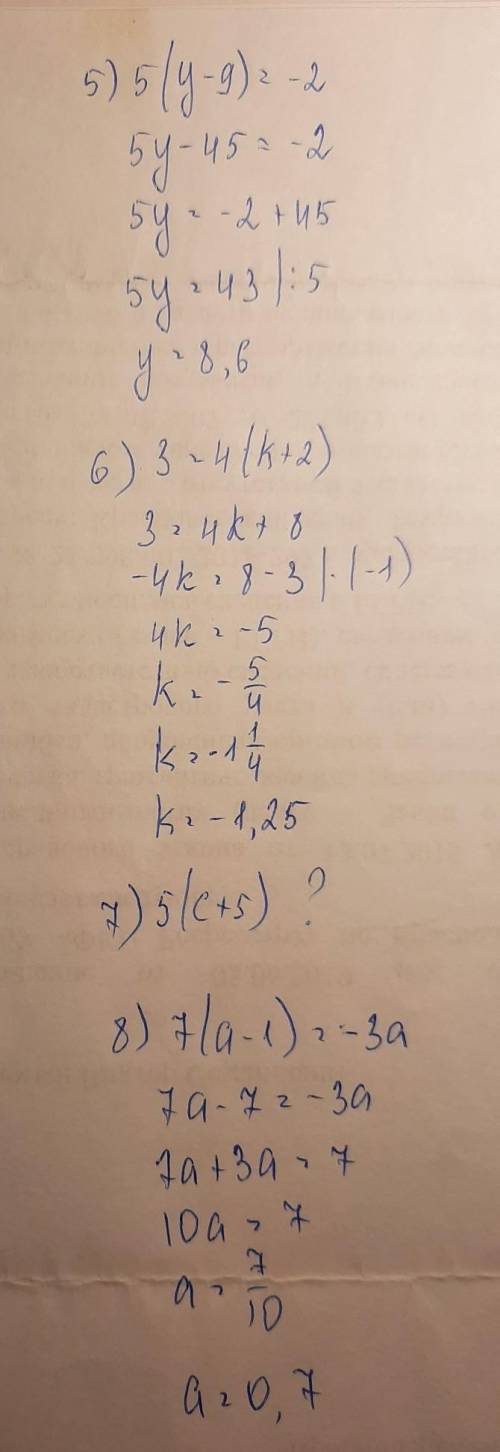 5) 5(y-9) = -2
5y - 45 = -2
5y = -2 + 45
5y = 43 | : 5
y = 8,6
6) 3 = 4(k+2)
3 = 4k + 8
-4k = 8 - 3 | · (-1)
4k = -5
k = - 5/4
k = -1 1/4
k = -1,25
7) 5(c+5) ?
8) 7(a-1) = -3a
7a - 7 = -3a
7a + 3a = 7
10a = 7
a = 7/10
a = 0,7